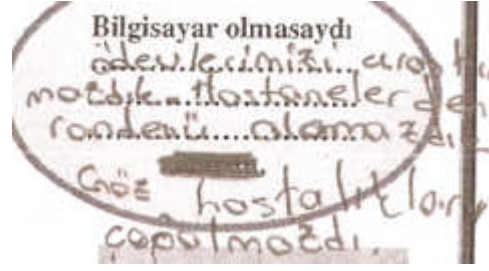 Bilgisayar olmasaydı
ödevlerimizi araştır
mazdık. Hastanelerden
randevü alamazdık
Göz hastalıkları
çoğolmazdı.